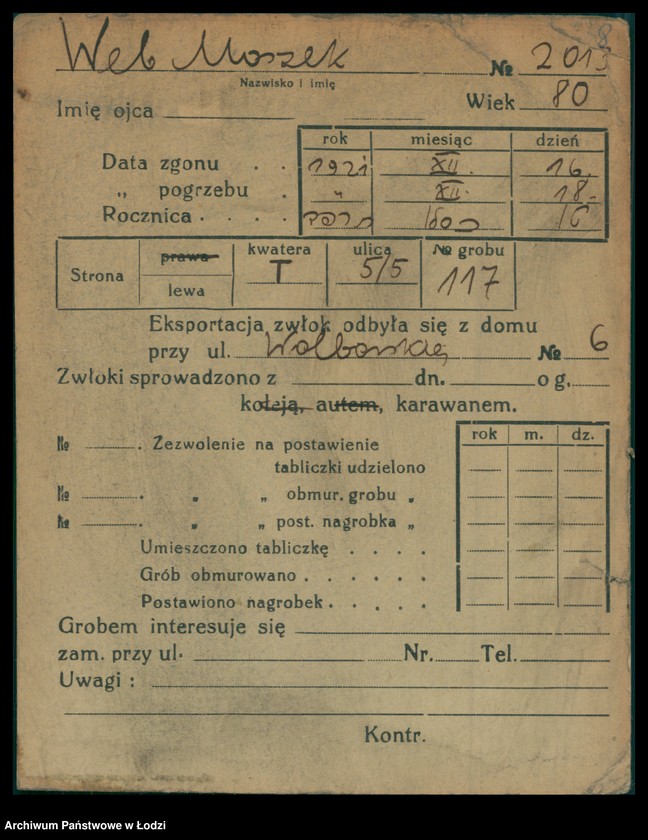 Web Moszek № 2013
8
Nazwisko i imię
Wiek 80
Imię ojca
rok miesiąc dzień
Data zgonu . . 1921 XII. 16.
„ pogrzebu . " XII. 18.-
Rocznica . . . . כסלו
Strona prawa kwatera ulica № grobu
lewa T 5/5 117
Eksportacja zwłok odbyła się z domu
przy ul. Wolborskiej № 6
Zwłoki sprowadzono z dn. o g.
koleją, autem, karawanem.
rok m. dz.
№ . Zezwolenie na postawienie
tabliczki udzielono
№ . „ „ obmur. grobu „
№ . „ „ post. nagrobka „
Umieszczono tabliczkę . . . .
Grób obmurowano . . . . . .
Postawiono nagrobek . . . . .
Grobem interesuje się
zam. przy ul. Nr. Tel.
Uwagi :
Kontr.
Archiwum Państwowe w Łodzi